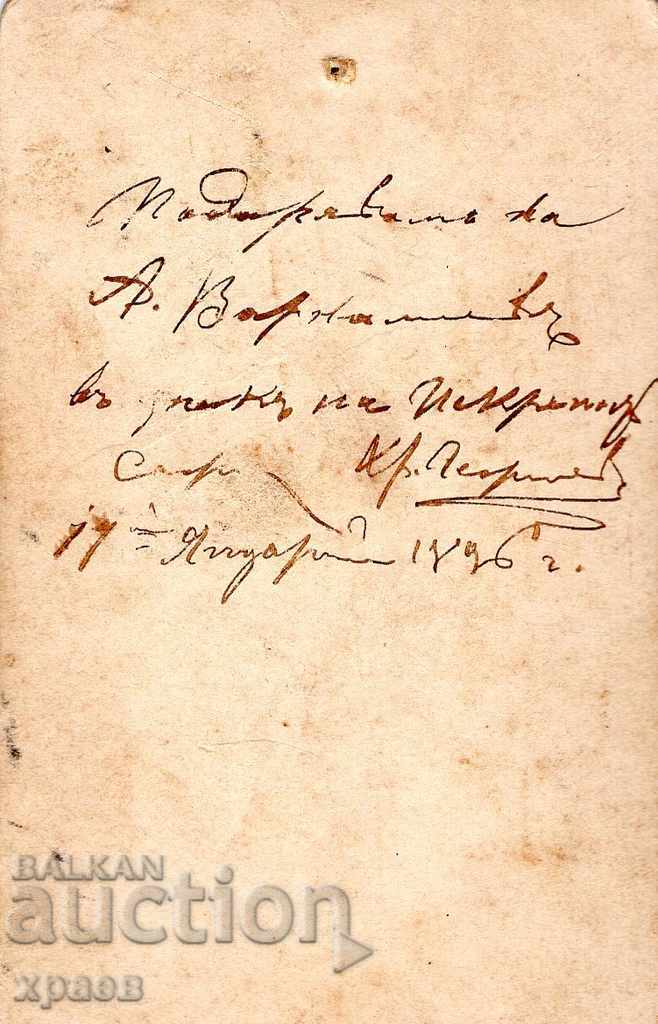 Подарявамъ на
А. Варналиевъ
въ знакъ на Искренн
Хр. Георгиевъ
17й Януарий 1896 г.
BALKAN
auction
храов